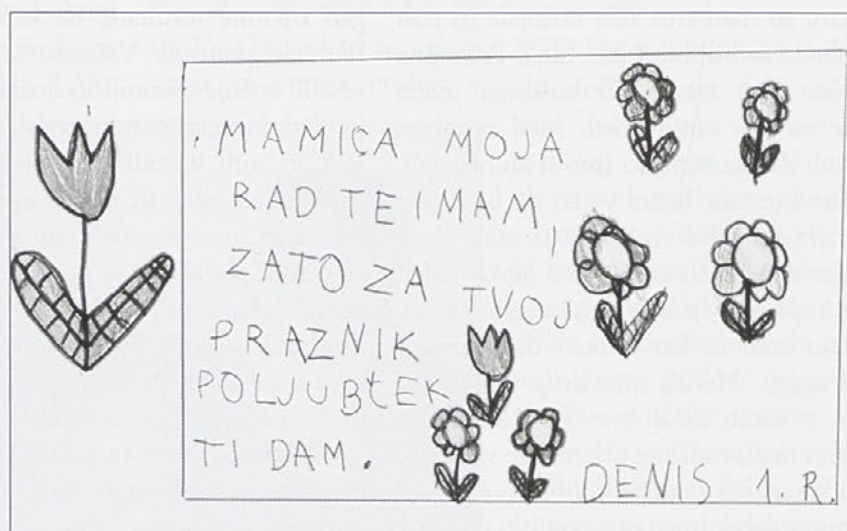 MAMICA MOJA
RAD TE IMAM,
ZATO ZA TVOJ
PRAZNIK
POLJUBČEK
TI DAM.
DENIS 1. R.